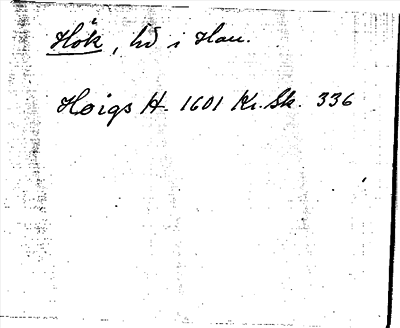 Hök, hd i Han.
Høigs H. 1601 Kr. Sk. 336